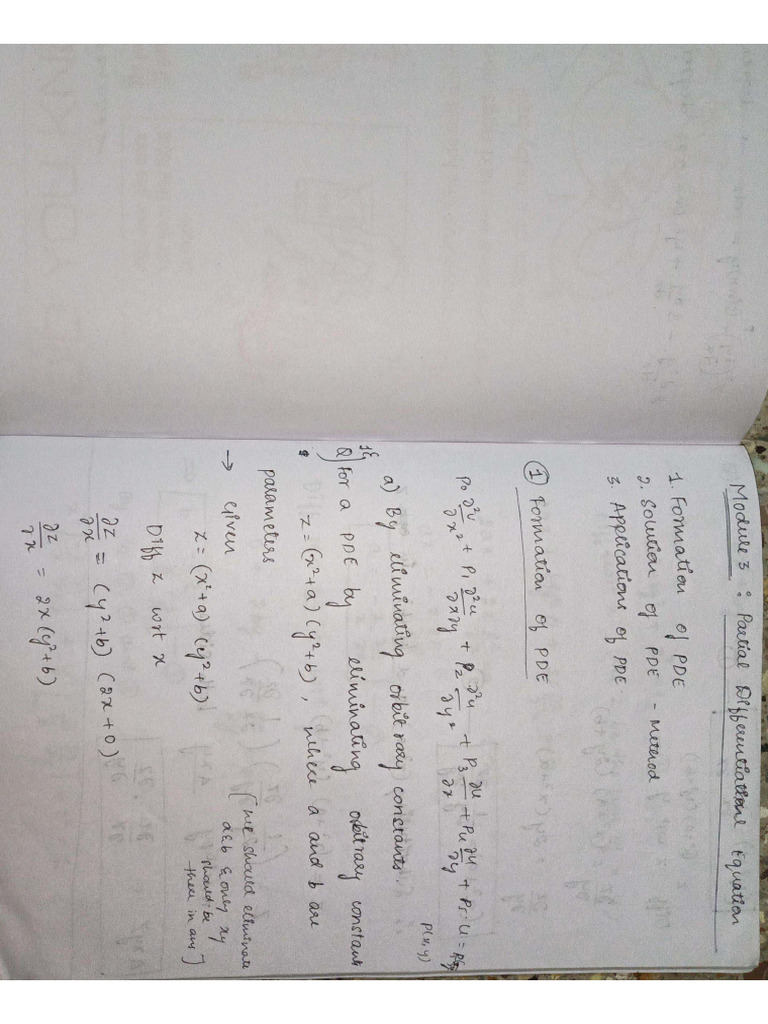 Module 3 : Partial Differentiation Equation
1. Formation of PDE
2. Solution of PDE - Method
3. Applications of PDE
① Formation of PDE
P₀ ∂²u/∂x² + P₁ ∂²u/∂x∂y + P₂ ∂²u/∂y² + P₃ ∂u/∂x + P₄ ∂u/∂y + P₅·u =
P(x,y)
a) By eliminating orbitrary constants
Q) For a PDE by eliminating orbitrary constant
z = (x²+a) (y²+b), where a and b are
parameters
→ Given
z = (x²+a) (y²+b)
[we should eliminate
a&b & only xy
should be
there in ans]
Diff z wrt x
∂z/∂x = (y²+b) (2x+0)
∂z/∂x = 2x(y²+b)